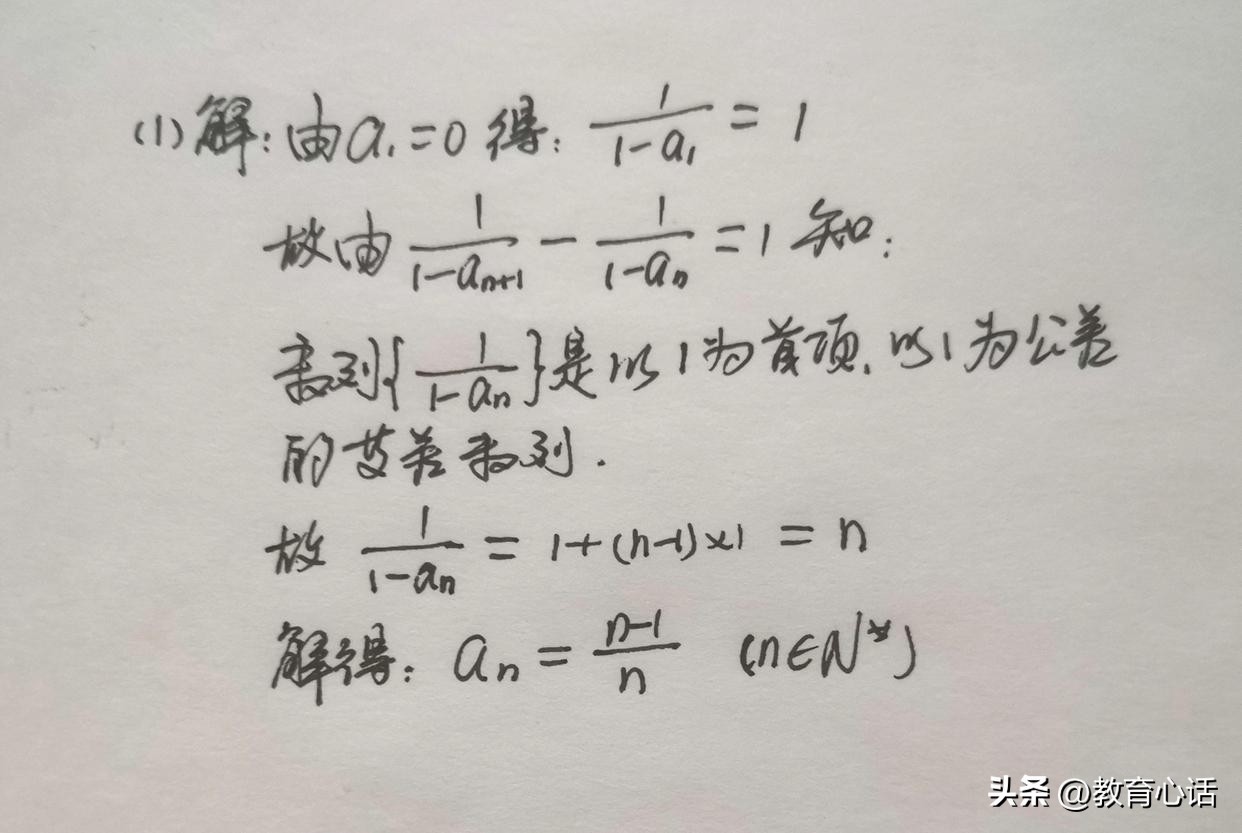 (1) 解：由 a₁=0 得：1/(1-a₁) = 1
故由 1/(1-aₙ₊₁) - 1/(1-aₙ) = 1 知：
数列{1/(1-aₙ)}是以1为首项，以1为公差
的等差数列．
故 1/(1-aₙ) = 1+(n-1)×1 = n
解得：aₙ = (n-1)/n (n∈N*)
头条 @教育心话